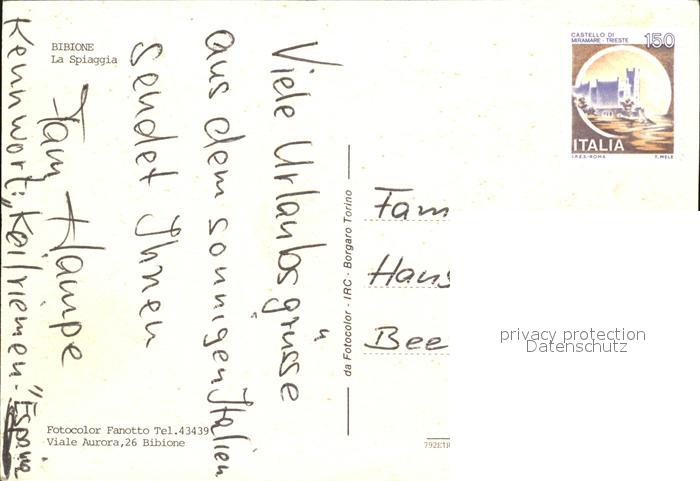 BIBIONE
La Spiaggia
Viele Urlaubsgrüsse
aus dem sonnigen Italien
sendet Ihnen
Fam Hampe
Kennwort: "Keilriemen-"
Fotocolor Fanotto Tel.43439
Viale Aurora,26 Bibione
da Fotocolor - IRC - Borgaro Torino
CASTELLO DI
MIRAMARE - TRIESTE
150
ITALIA
I.P.Z.S.-ROMA T. MELE
Fam
Hans
Bee
privacy protection
Datenschutz